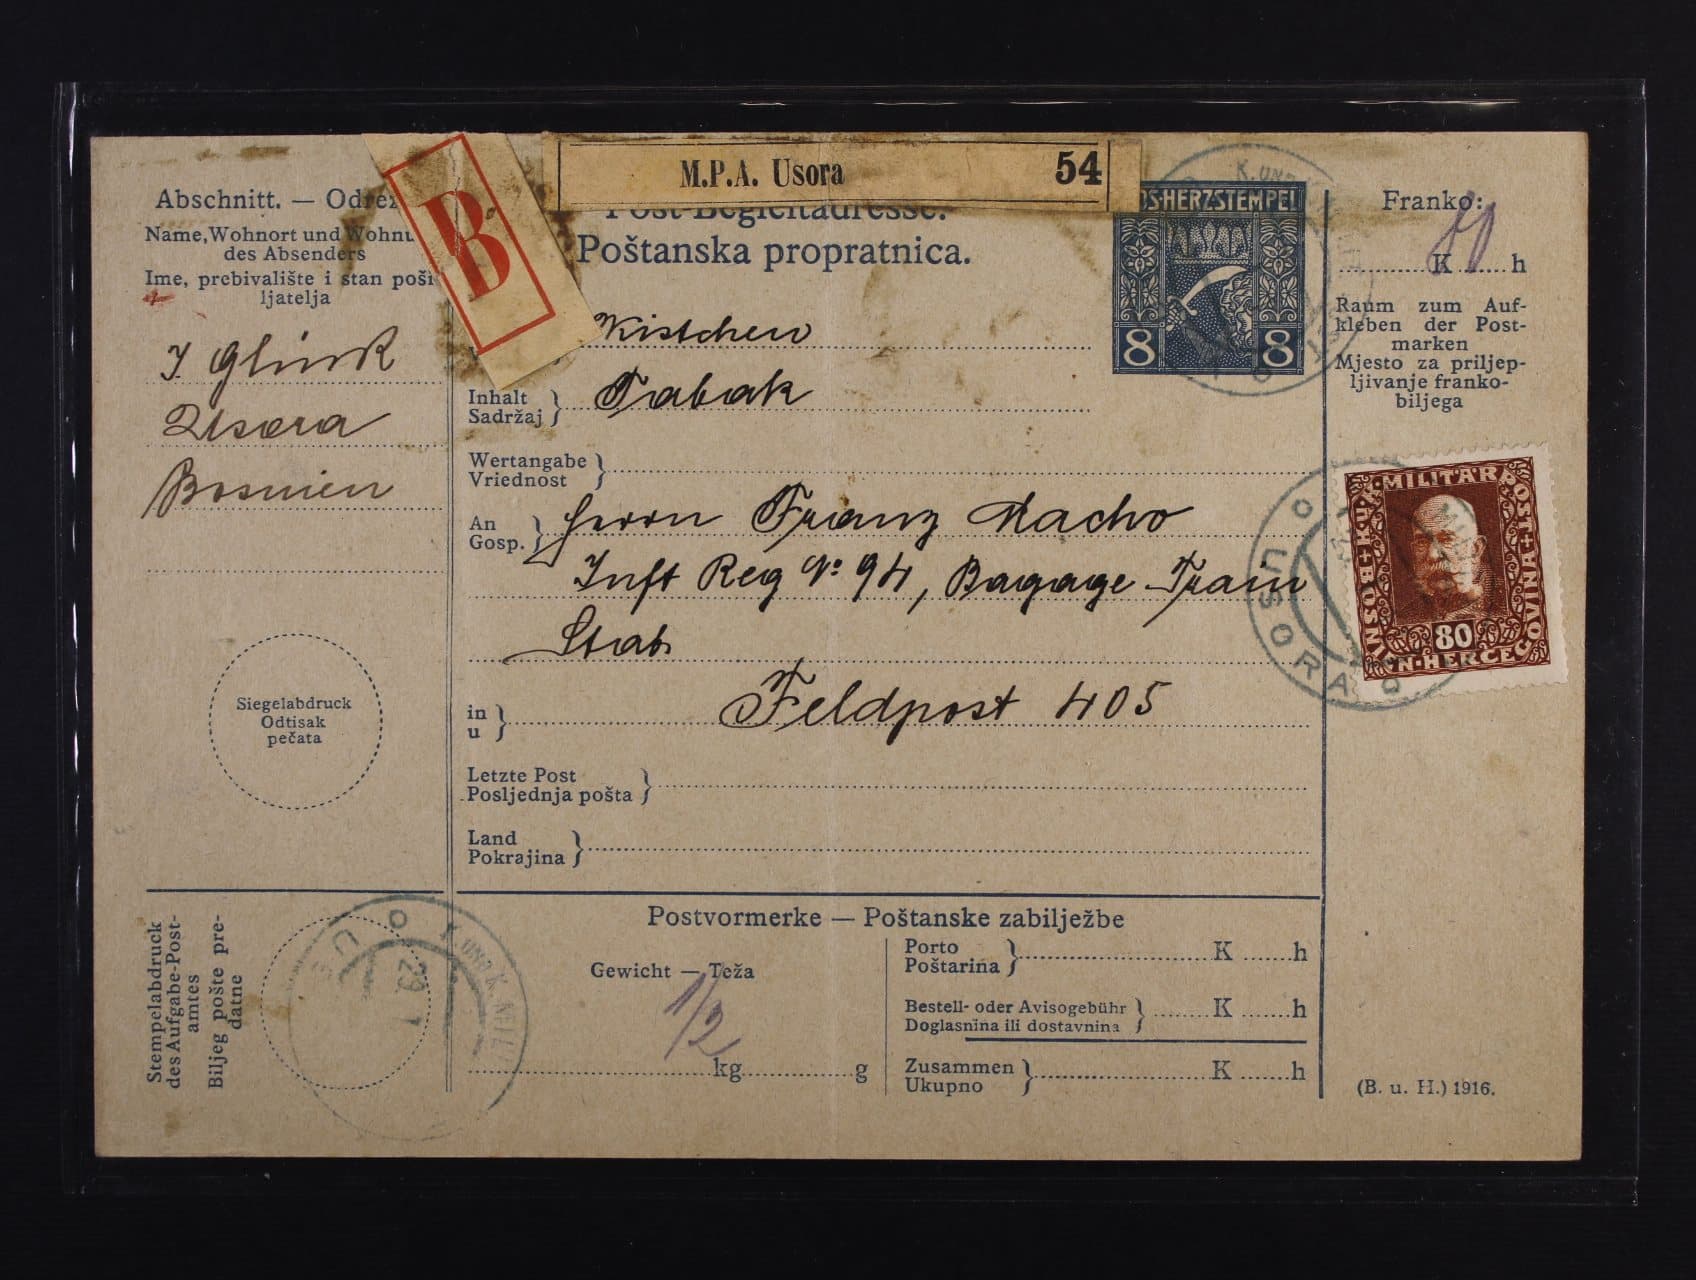 M.P.A. Usora 54
B
Abschnitt. — Odrez
Name, Wohnort und Wohnu
des Absenders
Ime, prebivalište i stan poši-
ljatelja
J Glink
Usora
Bosnien
Siegelabdruck
Odtisak
pečata
Post-Begleitadresse.
Poštanska propratnica.
HERZSTEMPEL
8 8
Kistchen
Inhalt
Sadržaj
Tabak
Wertangabe
Vriednost
An
Gosp.
Herrn Franz Macho
Inft Reg No 94, Bagage Train
Stab
in
u
Feldpost 405
Letzte Post
Posljednja pošta
Land
Pokrajina
Franko:
K h
Raum zum Auf-
kleben der Post-
marken
Mjesto za priljep-
ljivanje franko-
biljega
K.u.K. MILITÄRPOST
BOSNIEN-HERCEGOVINA
80
USORA
Stempelabdruck
des Aufgabe-Post-
amtes
Biljeg pošte pre-
datne
K. UND K.
29
Postvormerke — Poštanske zabilježbe
Gewicht — Teža
1/2
kg g
Porto
Poštarina
K h
Bestell- oder Avisogebühr
Doglasnina ili dostavnina
K h
Zusammen
Ukupno
K h
(B. u. H.) 1916.